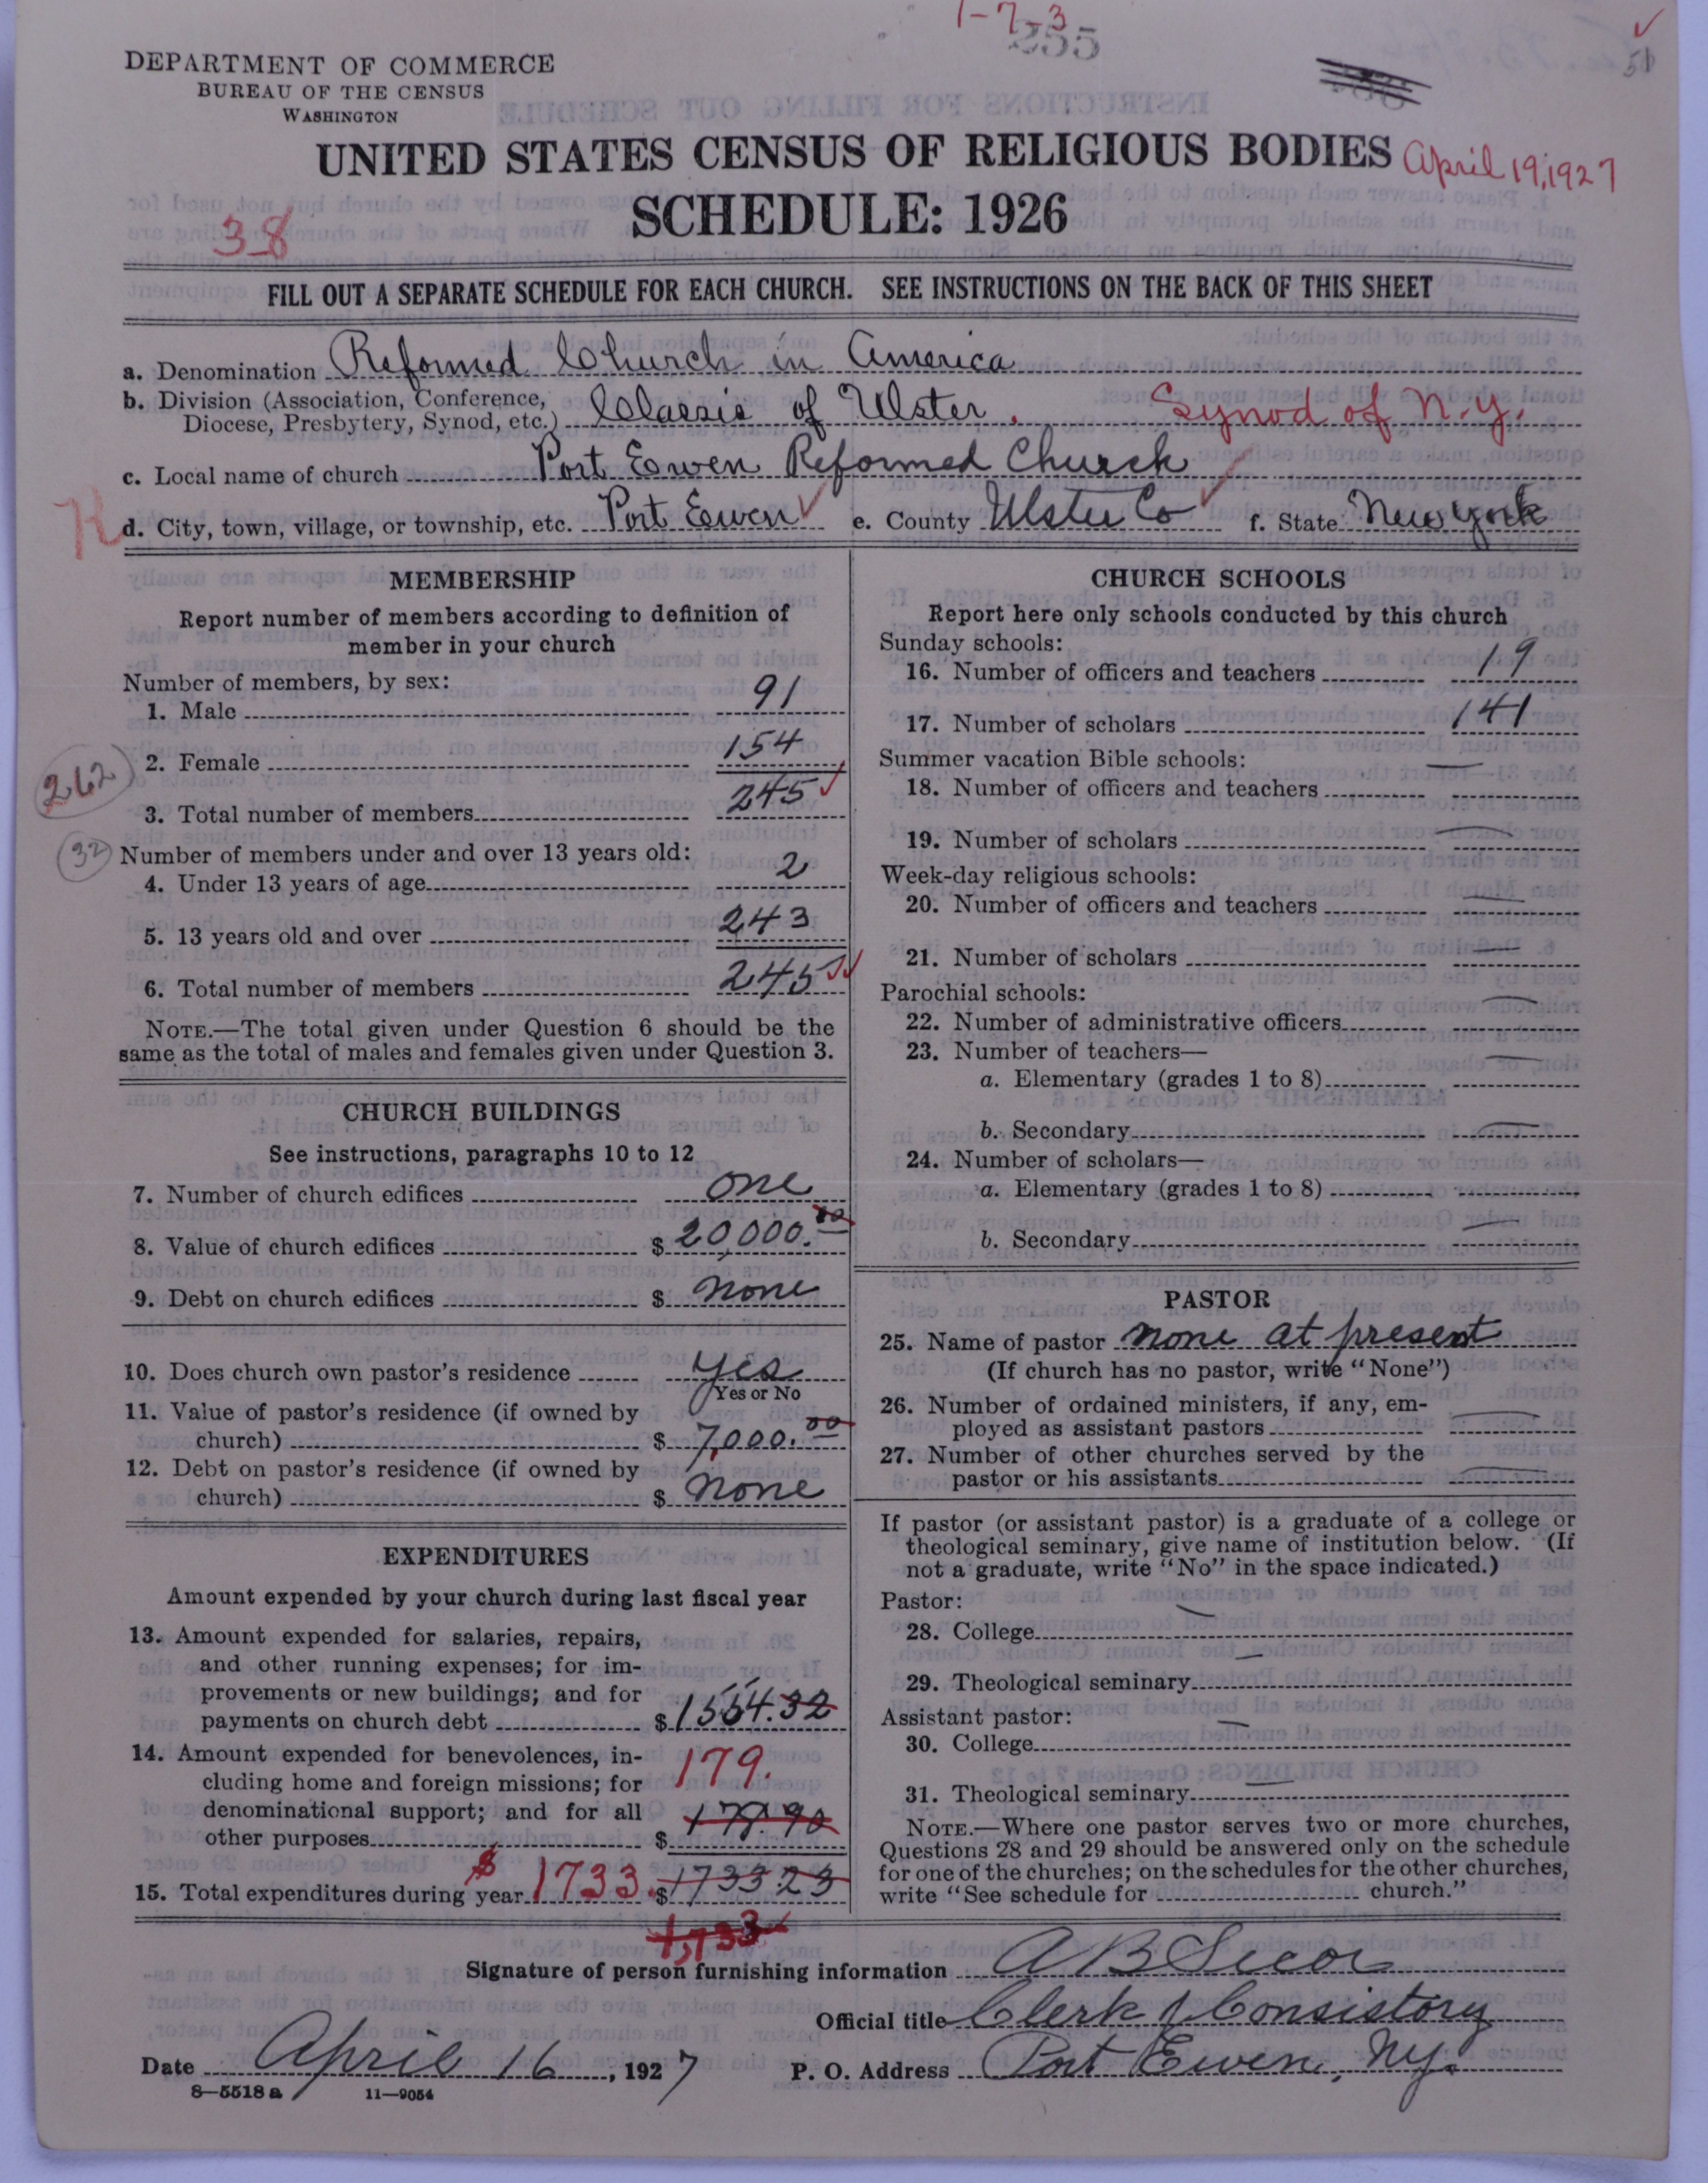 1-7-3
255
51
DEPARTMENT OF COMMERCE
BUREAU OF THE CENSUS
WASHINGTON
UNITED STATES CENSUS OF RELIGIOUS BODIES
April 19, 1927
SCHEDULE: 1926
38
FILL OUT A SEPARATE SCHEDULE FOR EACH CHURCH. SEE INSTRUCTIONS ON THE BACK OF THIS SHEET
a. Denomination Reformed Church in America
b. Division (Association, Conference, Diocese, Presbytery, Synod, etc.) Classis of Ulster. Synod of N.Y.
c. Local name of church Port Ewen Reformed Church
d. City, town, village, or township, etc. Port Ewen e. County Ulster Co f. State New York
MEMBERSHIP
Report number of members according to definition of
member in your church
Number of members, by sex:
1. Male 91
2. Female 154
262
3. Total number of members 245
32
Number of members under and over 13 years old:
4. Under 13 years of age 2
5. 13 years old and over 243
6. Total number of members 245
NOTE.—The total given under Question 6 should be the
same as the total of males and females given under Question 3.
CHURCH BUILDINGS
See instructions, paragraphs 10 to 12
7. Number of church edifices one
8. Value of church edifices $ 20,000.00
9. Debt on church edifices $ none
10. Does church own pastor's residence yes
Yes or No
11. Value of pastor's residence (if owned by
church) $ 7,000.00
12. Debt on pastor's residence (if owned by
church) $ none
EXPENDITURES
Amount expended by your church during last fiscal year
13. Amount expended for salaries, repairs,
and other running expenses; for im-
provements or new buildings; and for
payments on church debt $ 1554.32
14. Amount expended for benevolences, in-
cluding home and foreign missions; for 179.
denominational support; and for all
other purposes $ 178.90
15. Total expenditures during year $ 1733. $ 1733.23
1,733
CHURCH SCHOOLS
Report here only schools conducted by this church
Sunday schools:
16. Number of officers and teachers 19
17. Number of scholars 141
Summer vacation Bible schools:
18. Number of officers and teachers
19. Number of scholars
Week-day religious schools:
20. Number of officers and teachers
21. Number of scholars
Parochial schools:
22. Number of administrative officers
23. Number of teachers—
a. Elementary (grades 1 to 8)
b. Secondary
24. Number of scholars—
a. Elementary (grades 1 to 8)
b. Secondary
PASTOR
25. Name of pastor none at present
(If church has no pastor, write "None")
26. Number of ordained ministers, if any, em-
ployed as assistant pastors
27. Number of other churches served by the
pastor or his assistants
If pastor (or assistant pastor) is a graduate of a college or
theological seminary, give name of institution below. (If
not a graduate, write "No" in the space indicated.)
Pastor:
28. College
29. Theological seminary
Assistant pastor:
30. College
31. Theological seminary
NOTE.—Where one pastor serves two or more churches,
Questions 28 and 29 should be answered only on the schedule
for one of the churches; on the schedules for the other churches,
write "See schedule for church."
Signature of person furnishing information A B Secor
Official title Clerk of Consistory
Date April 16, 1927 P. O. Address Port Ewen, N.Y.
8—5518 a 11—9054